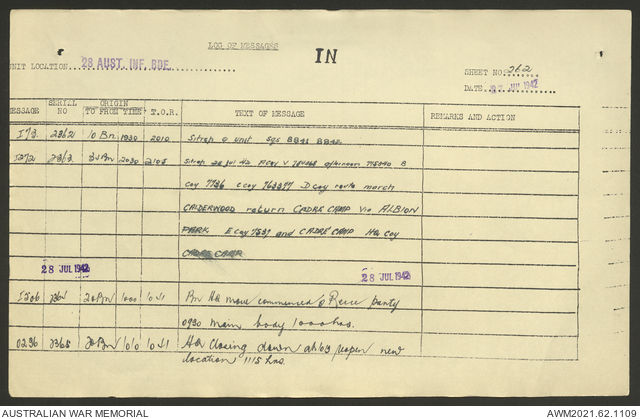 LOG OF MESSAGES
IN
UNIT LOCATION 28 AUST. INF. BDE.
SHEET NO. 262
DATE 27 JUL 1942
MESSAGE SERIAL NO ORIGIN TO FROM TIME T.O.R. TEXT OF MESSAGE REMARKS AND ACTION
173 2362 10 Bn 1930 2010 Sitrep 0 unit sqs 8841 8842
2363 Bn 2030 2105 Sitrep 28 Jul 42 afternoon B
Coy 7736 C Coy 763377 D Coy route march
CALDERWOOD return CADRE CAMP via ALBION
PARK E Coy 7537 and CADRE CAMP HQ Coy
CADRE CAMP
28 JUL 1942 28 JUL 1942
Bn 1000 1041 Bn HQ move commenced Recce party
0930 main body 1000 hrs.
0236 2365 Bn 1010 1041 HQ closing down reopen new
location 1115 hrs.
AUSTRALIAN WAR MEMORIAL AWM2021.62.1109